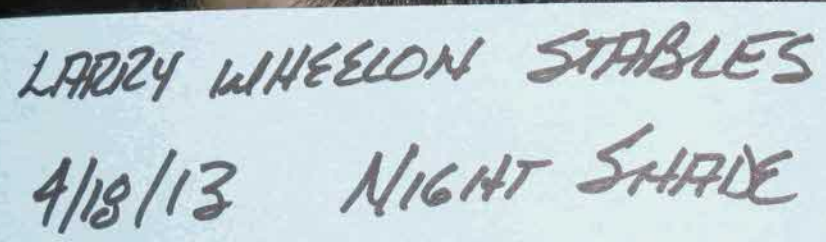 LARRY WHEELON STABLES
4/18/13 NIGHT SHADE